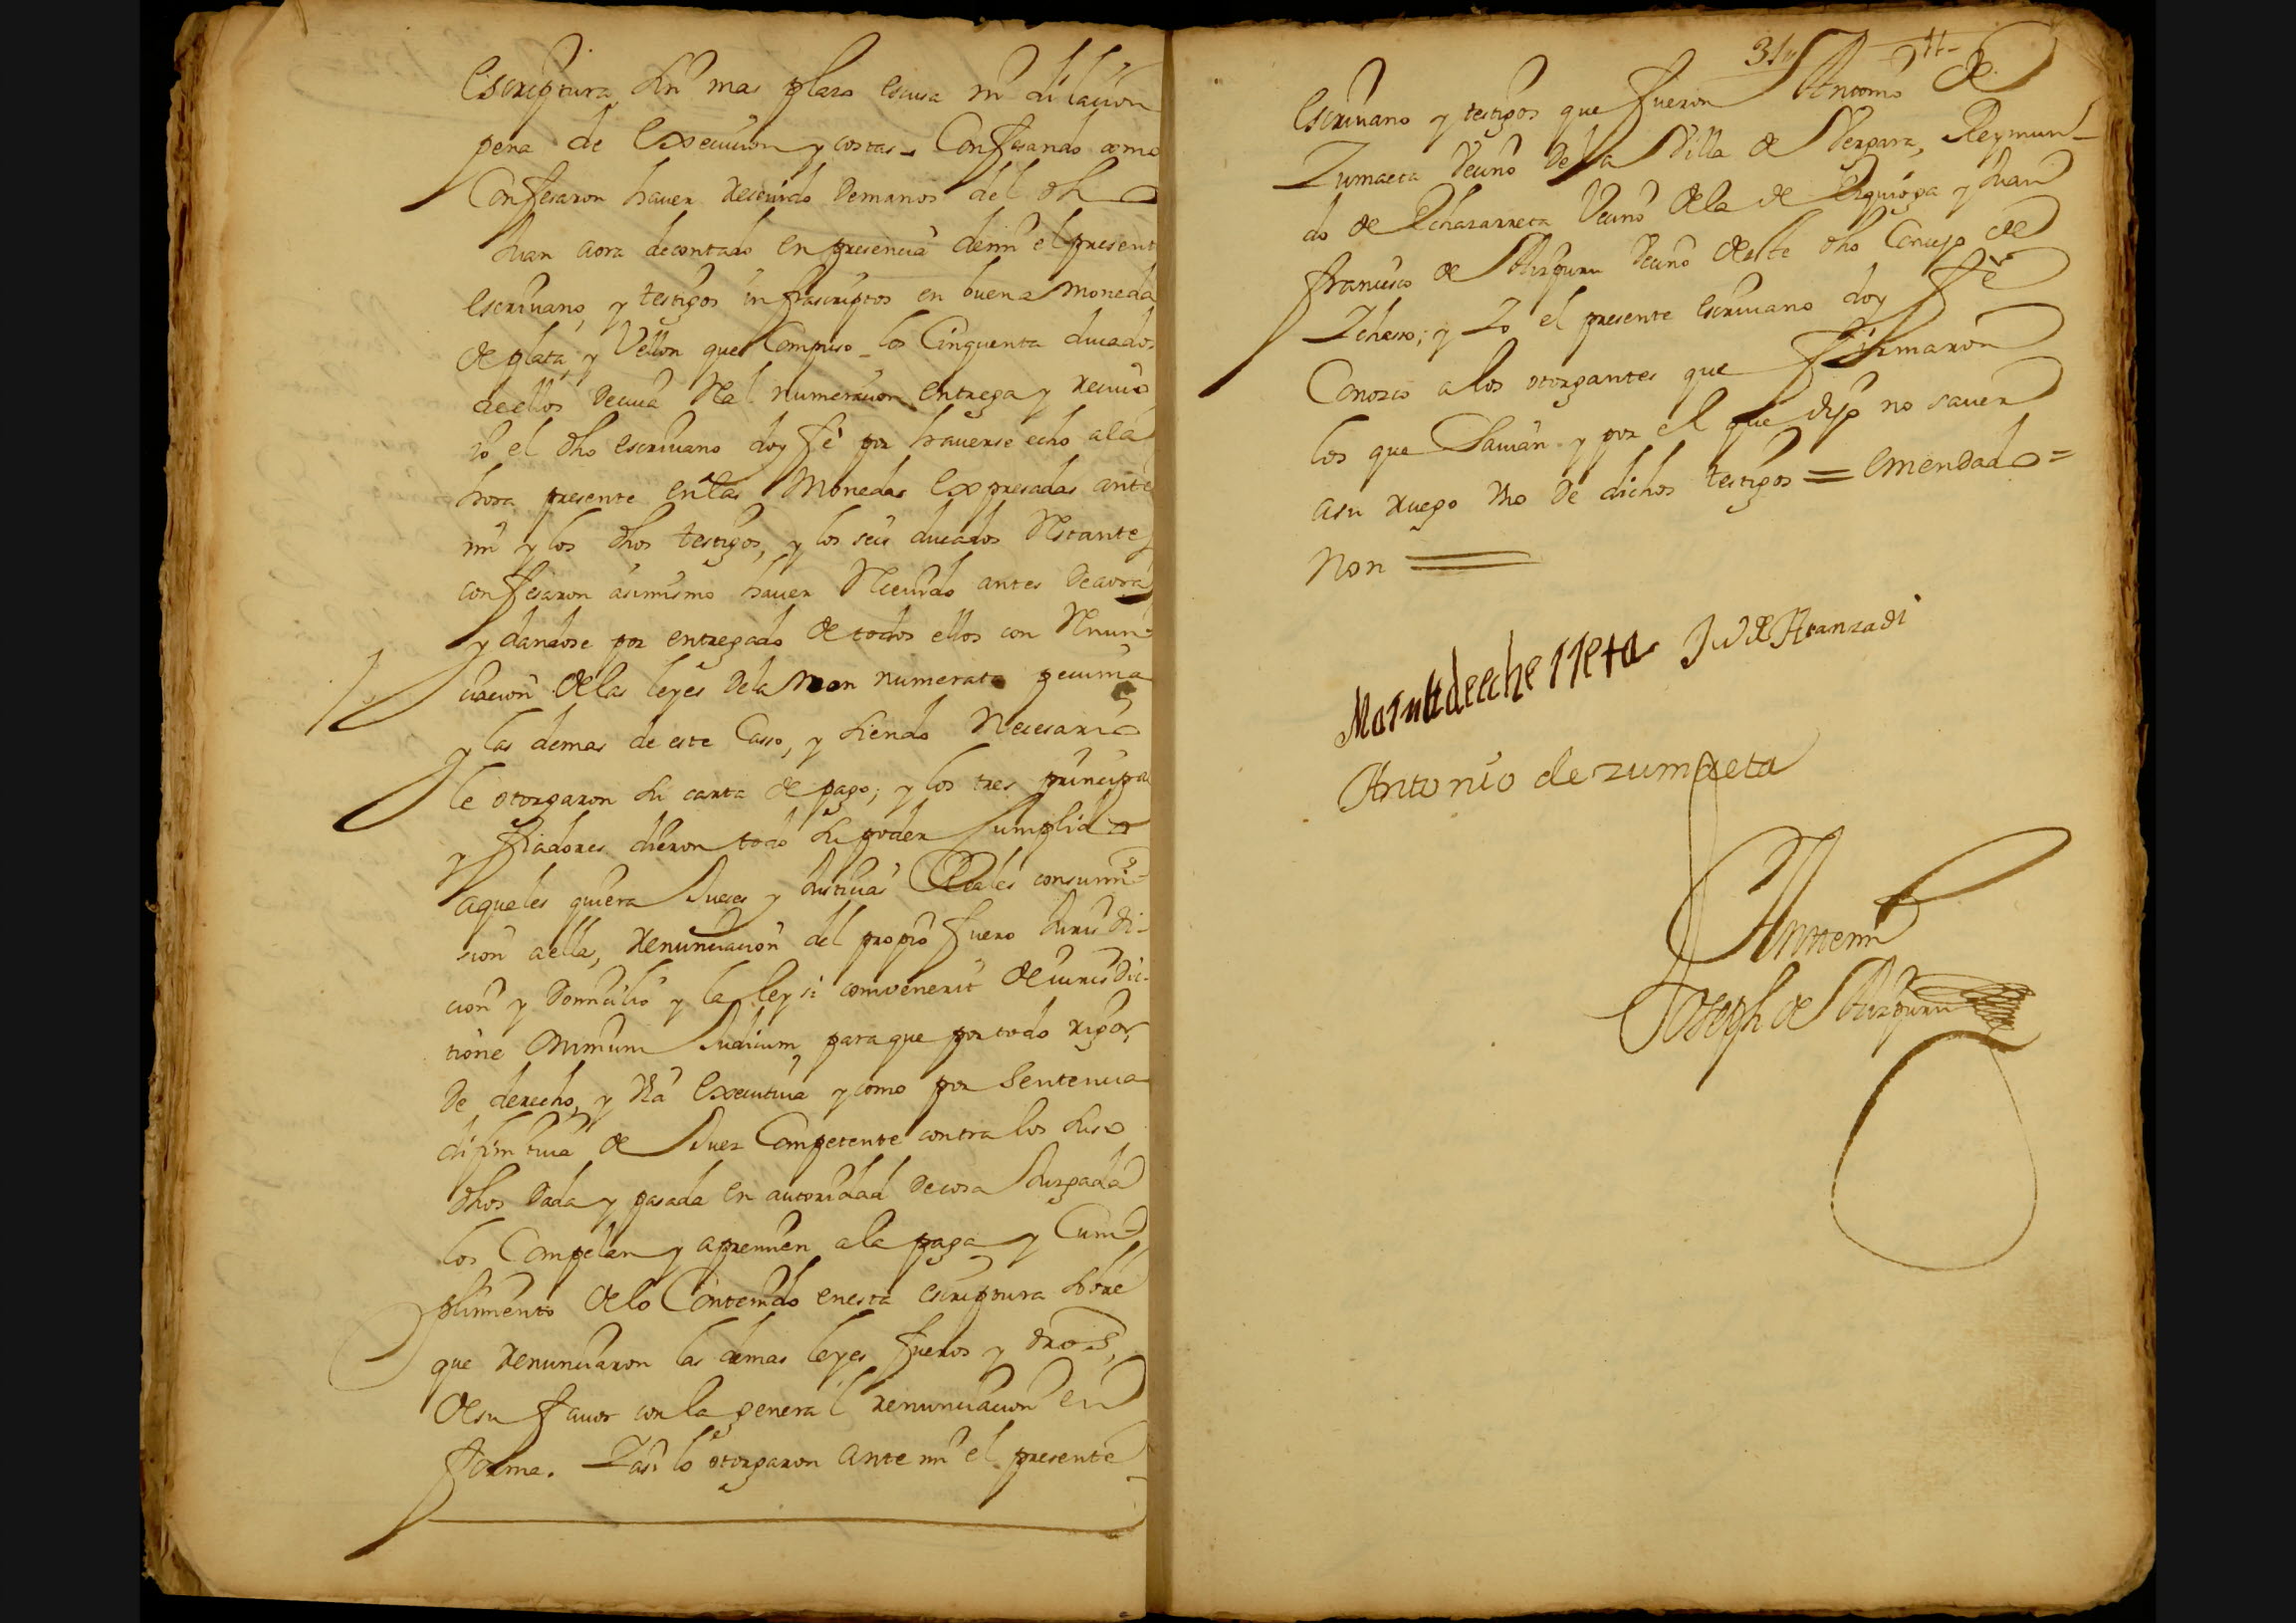 escriptura sin mas plazo escusa ni dilacion
pena de execucion y costas - Confesando como
Confesaron haver recevido de manos del dho
Juan aora de contado en presencia de mi el present
escrivano, y testigos infrascriptos en buena moneda
de plata, y Vellon que compuso los Cinquenta ducados
de ellos de cuia Real numeracion entrega y recivo
Yo el dho escrivano doy fe por haverse echo ala
hora presente en las Monedas expresadas ante
mi y los dhos testigos, y los seis ducados Restantes
confesaron asimismo haver Recevido antes de aora
y dandose por entregado de todos ellos con Renun-
ciacion de las leyes de la Non numerata pecunia
y las demas de este Caso, y siendo Necesario
le otorgaron su carta de pago; y los tres principa
y fiadores dieron todo su poder Cumplido
a quales quiera Jueces y Justicias Reales con sumi-
sion a ella, renunciacion del propio fuero Jurisdi-
cion y Domicilio y la ley si convenerit de iurisdic-
tione omnium Judicum, para que por todo rigor
de derecho, y Via executiva y como por sentencia
difinitiva de Juez Competente contra los suso
dhos dada y pasada en autoridad de cosa Juzgada
los Compelan y apremien a la paga y Cum-
plimiento de lo Contenido en esta escriptura sobre
que renunciaron las demas leyes fueros y dros,
de su favor con la general renunciacion en
forma. Y asi lo otorgaron ante mi el presente
31
escrivano y testigos que fueron Antonio de
Zumaeta vecino de la Villa de Vergara, Reymun-
do de Echazarreta Vecino de la de Ezquioga y Juan
francisco de Aizpuru vecino de este dho Concejo de
Ychaso; y Yo el presente escrivano doy fe
Conozco a los otorgantes que firmaron
los que savian y por el que dijo no saver
a su ruego Uno de dichos testigos = emendado =
Non =
Martin de echeverreta Ju de Aranzadi
Antonio de zumaeta
Ante mi
Joseph de Aizpuru